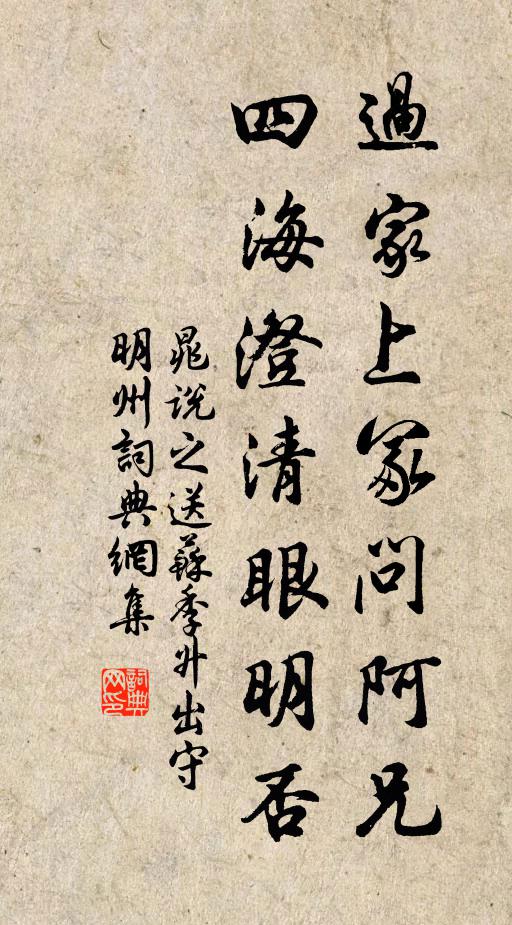 過家上冢問阿兄
四海澄清眼明否
晁說之送蘇季升出守
明州詞典網集
詞典
网印